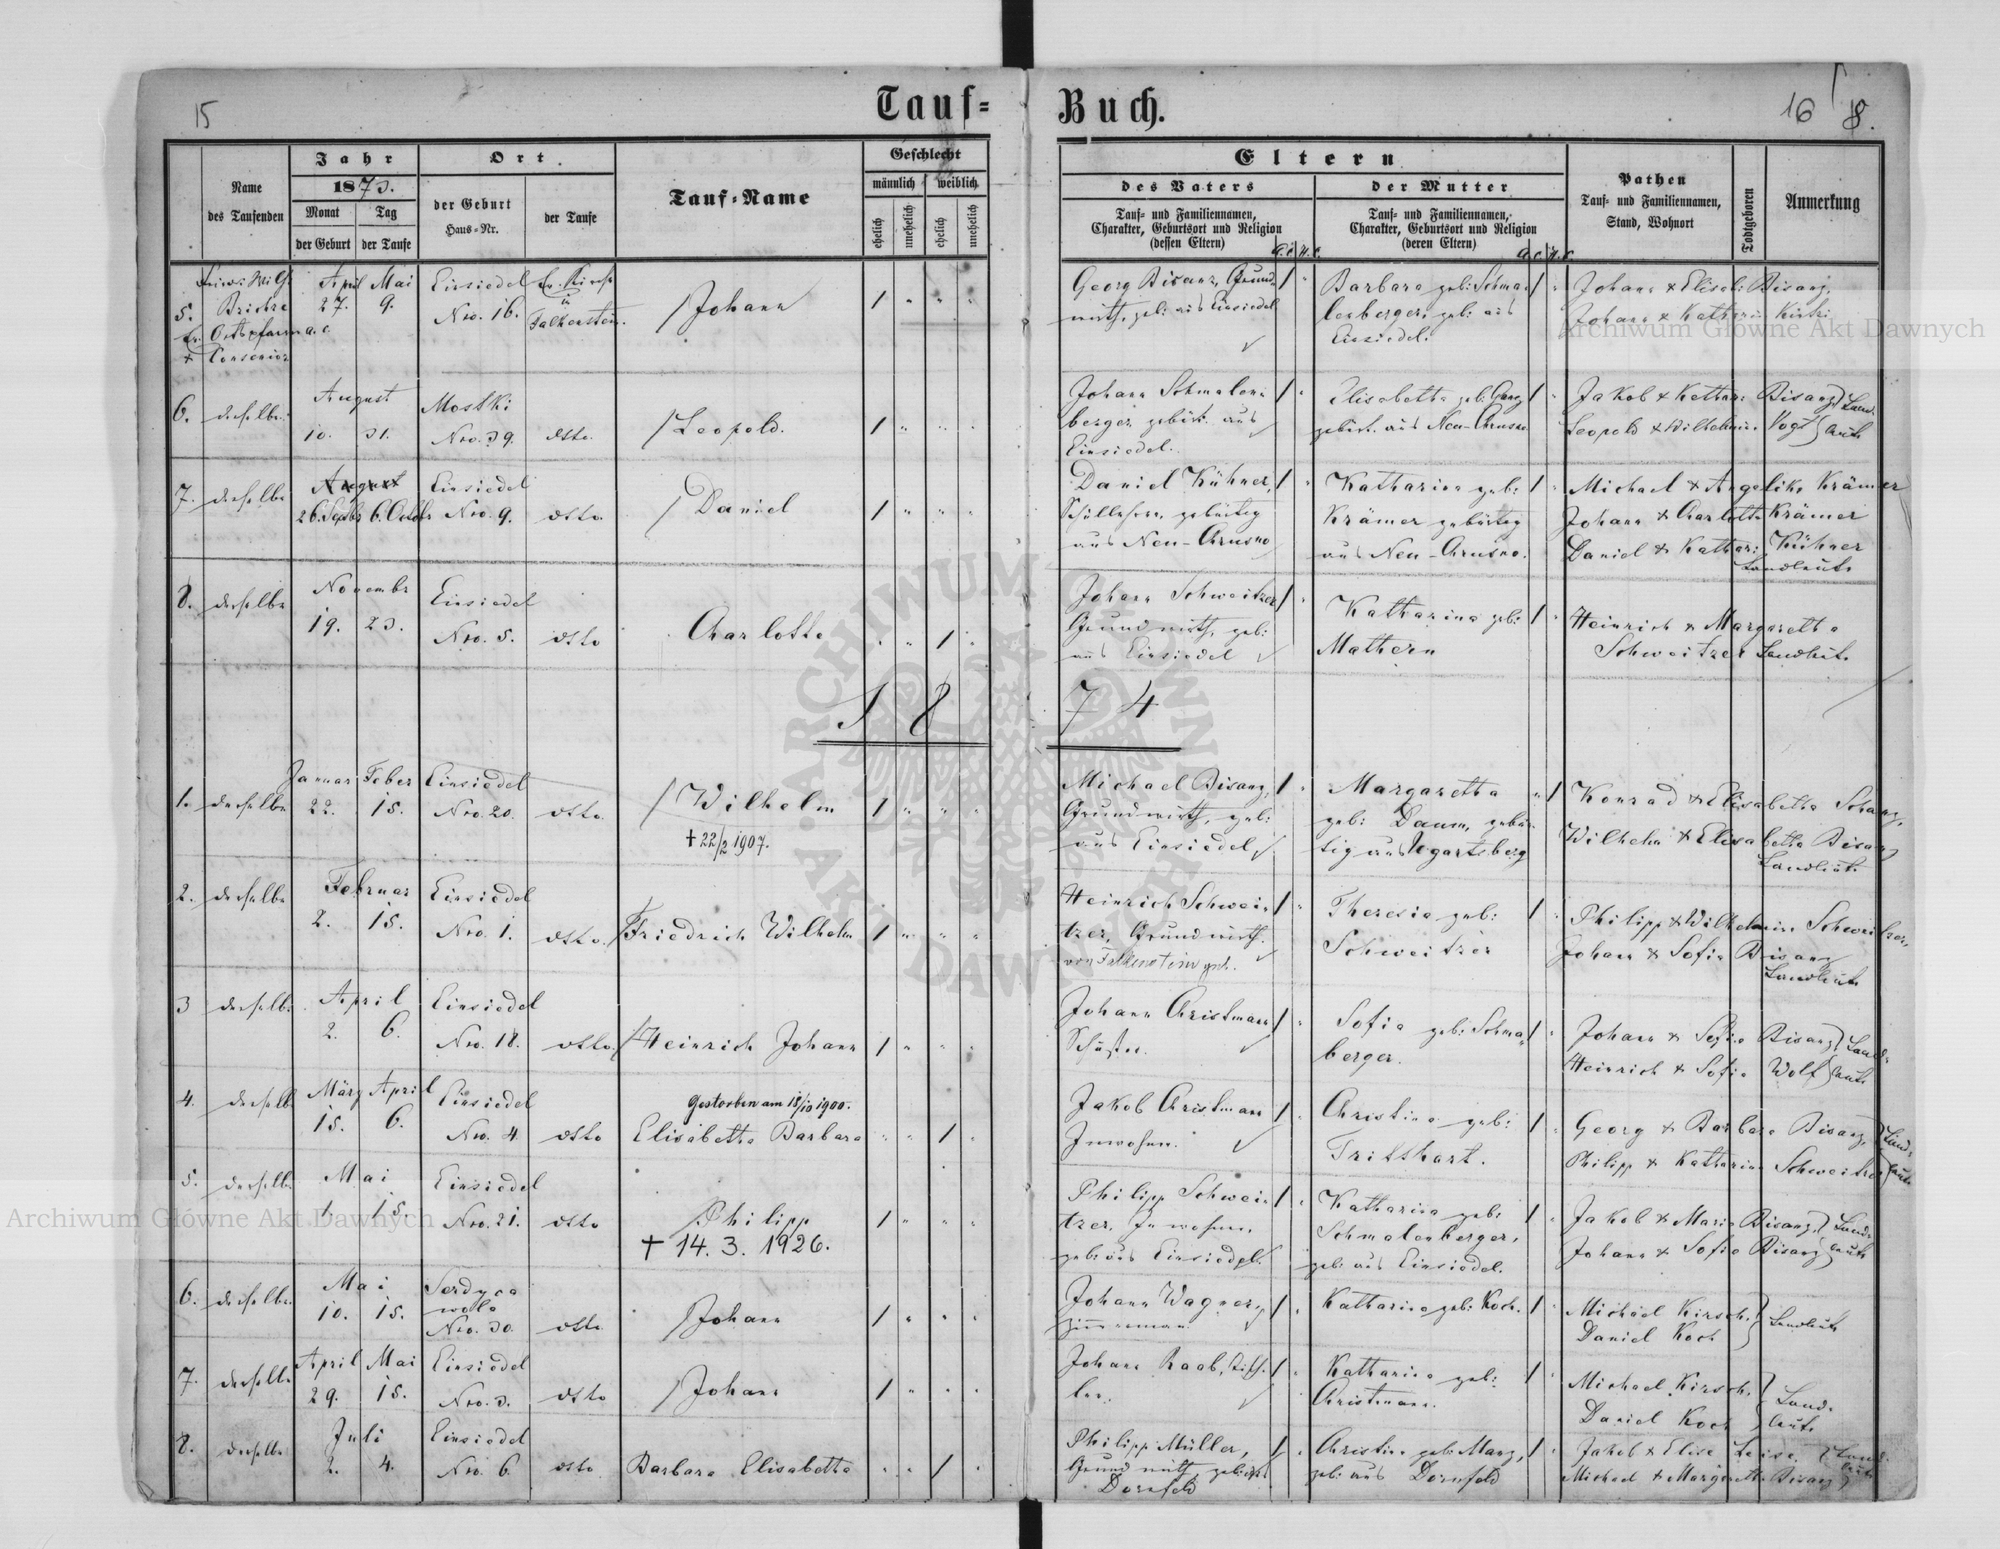 15
Tauf=
Buch.
16
8.
Name
des Taufenden
Jahr
1873.
Monat
Tag
der Geburt
der Taufe
Ort
der Geburt
Haus=Nr.
der Taufe
Tauf=Name
Geschlecht
männlich
weiblich
ehelich
unehelich
ehelich
unehelich
Eltern
des Vaters
Tauf= und Familiennamen,
Charakter, Geburtsort und Religion
(dessen Eltern)
der Mutter
Tauf= und Familiennamen,
Charakter, Geburtsort und Religion
(deren Eltern)
Pathen
Tauf= und Familiennamen,
Stand, Wohnort
Todtgeboren
Anmerkung
5.
Ortspfarrer a. c.
+ Consenior
April Mai
27. 9.
Einsiedel
Nro. 16.
Ev. Kirche
in
Falkenstein.
Johann
1
Georg Bisanz, Grund=
wirth, geb: aus Einsiedel
Barbara geb: Schma=
lenberger, geb: aus
Einsiedel.
Johann & Elisab: Bisanz,
6. derselbe
August
10. 31.
Mostki
Nro. 39.
detto
Leopold.
1
Johann Schmalen=
berger gebürt. aus
Einsiedel.
Elisabetha geb:
gebürt. aus Neu-Chrusno
Jakob & Kathar: Bisanz } Land=
Leopold & Wilhelmine Vogt } leute
7. derselbe
August
26. Septbr 6. Octobr
Einsiedel
Nro. 9.
detto
Daniel
1
Daniel Kühner,
Schullehrer, gebürtig
aus Neu-Chrusno
Katharina geb:
Krämer gebürtig
aus Neu-Chrusno.
Michael & Angelika Krämer
Johann & Charlotte Krämer
Daniel & Kathar: Kühner
Landleute
8. derselbe
Novembr
19. 23.
Einsiedel
Nro. 5.
detto
Charlotte
1
Johann Schweitzer
Grundwirth, geb:
aus Einsiedel
Katharina geb:
Mathern
Heinrich & Margaretha
Schweitzer Landleute
1 8 7 4
1. derselbe
Januar Feber
22. 15.
Einsiedel
Nro. 20.
detto
Wilhelm
† 22/2 1907.
1
Michael Bisanz,
Grundwirth, geb:
aus Einsiedel
Margaretha
geb: Daum, gebür=
tig aus Ugartsberg
Konrad & Elisabetha Schanz,
Wilhelm & Elisabetha Bisanz
Landleute
2. derselbe
Februar
2. 15.
Einsiedel
Nro. 1.
detto.
Friedrich Wilhelm
1
Heinrich Schwei=
tzer, Grundwirth.
von Falkenstein geb.
Theresia geb:
Schweitzer
Philipp & Wilhelmine Schweitzer,
Johann & Sofia Bisanz
Landleute
3 derselbe
April
2. 6.
Einsiedel
Nro. 18.
detto
Heinrich Johann
1
Johann Christmann
Schuster.
Sofia geb: Schma=
berger.
Johann & Sofia Bisanz } Land=
Heinrich & Sofia Wolf } leute
4. derselbe
März April
15. 6.
Einsiedel
Nro. 4
detto
Gestorben am 18/10 1900.
Elisabetha Barbara
1
Jakob Christmann
Inwohner.
Christina geb:
Trittthart.
Georg & Barbara Bisanz, } Land=
Philipp & Katharina Schweitzer } leute
5. derselbe
Mai
1. 15.
Einsiedel
Nro. 21.
detto
Philipp
† 14. 3. 1926.
1
Philipp Schwei=
tzer, Inwohner,
geb: aus Einsiedel.
Katharina geb:
Schmalenberger,
geb: aus Einsiedel.
Jakob & Maria Bisanz } Land=
Johann & Sofia Bisanz } leute
6. derselbe
Mai
10. 15.
Serdyca
wola
Nro. 30.
detto
Johann
1
Johann Wagner,
Zimmermann
Katharina geb: Koch.
Michael Kirsch, } Landleute
Daniel Koch
7. derselbe
April Mai
29. 15.
Einsiedel
Nro. 3.
detto
Johann
1
Johann Raab, Tisch=
ler.
Katharina geb:
Christmann.
Michael Kirsch, } Land=
Daniel Koch } leute
8. derselbe
Juli
2. 4.
Einsiedel
Nro. 6
detto
Barbara Elisabetha
1
Philipp Müller,
Grundwirth, geb: aus
Dornfeld
Christina geb: Manz,
geb: aus Dornfeld
Jakob & Elise } Land=
Michael & Margaretha Bisanz } leute
Archiwum Główne Akt Dawnych
Archiwum Główne Akt Dawnych
ARCHIWUM GŁÓWNE AKT DAWNYCH